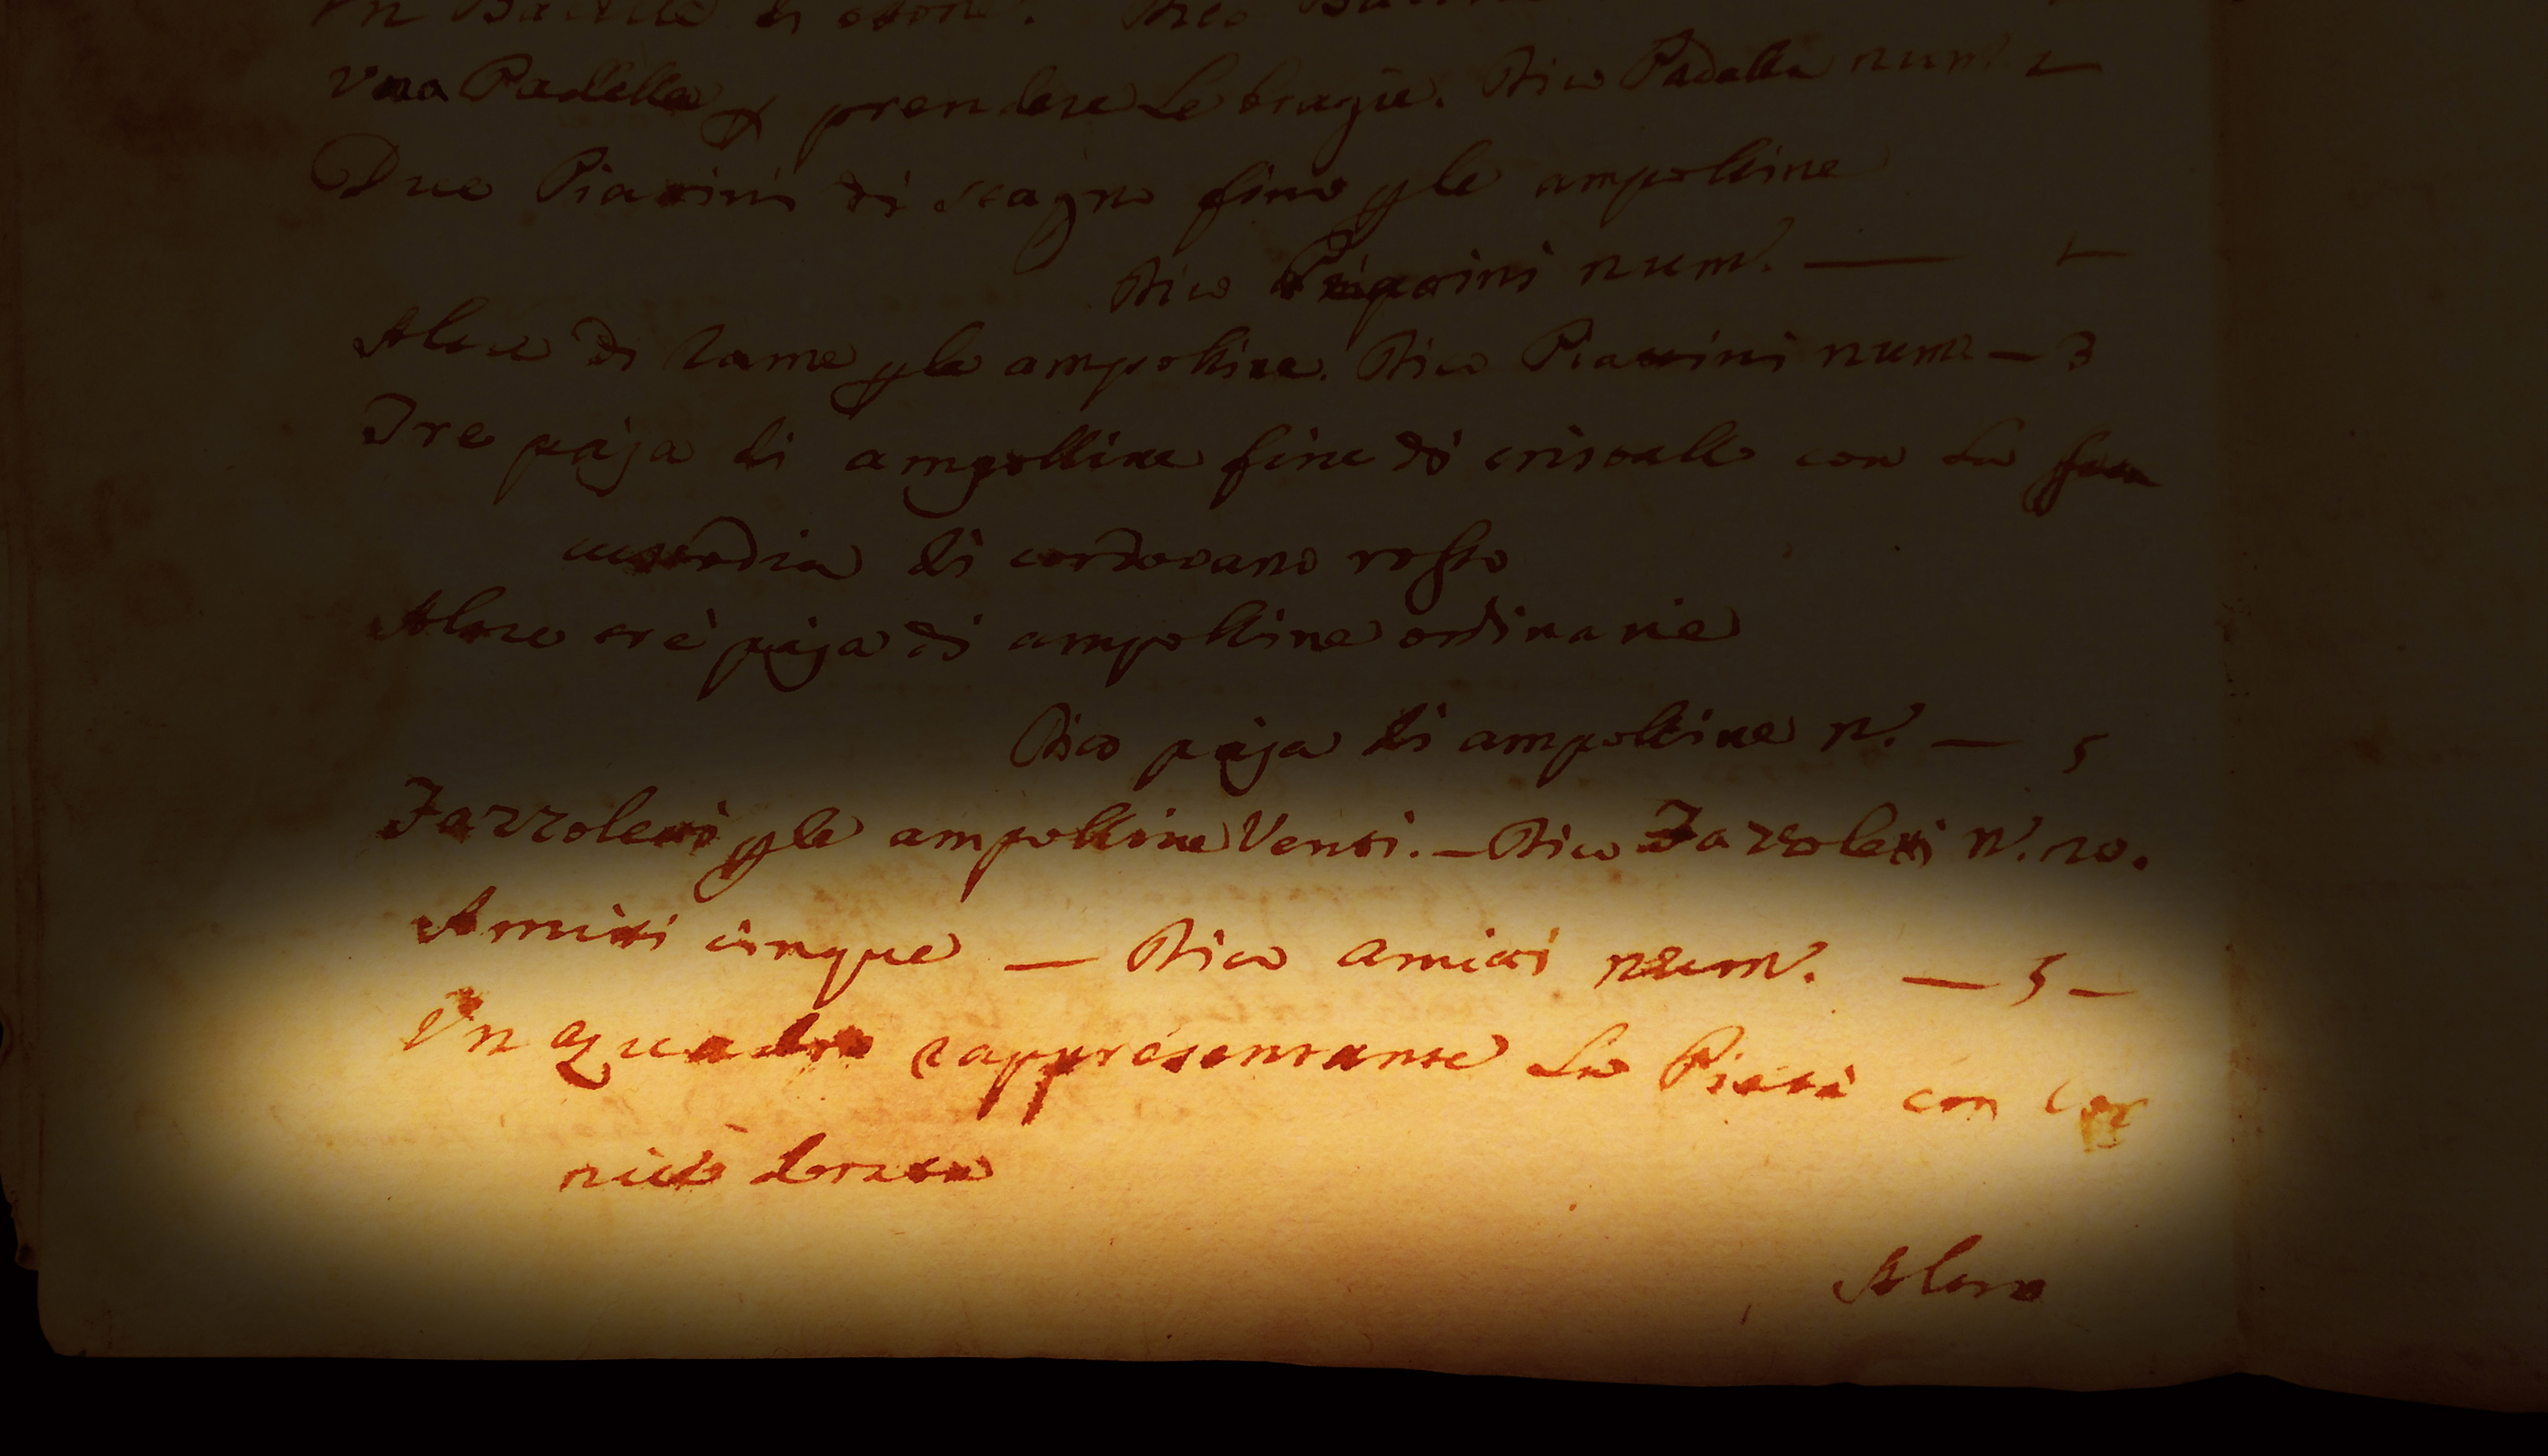 Una Padella p prendere Le bragie. Dico Padella num 1
Due Piattini di stagno fino p le ampolline
Dico num. — 1
Altri di rame p le ampolline. Dico Piattini num — 3
Tre paja di ampolline fine di cristallo con La sua
custodia di cordovano rosso
Altre tre paja di ampolline ordinarie
Dico paja di ampolline n. — 5
Fazzoletti p le ampolline Venti. — Dico Fazzoletti N. 20.
Amitti cinque — Dico amitti num. — 5 —
Un quadro rappresentante La Pietà con Cor
nice dorata
Altro